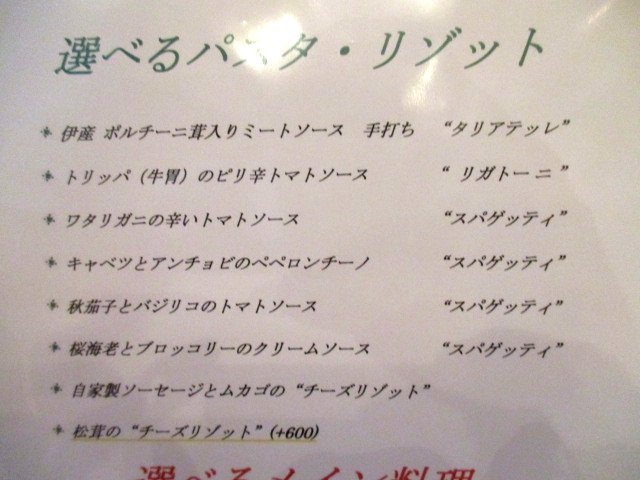 選べるパスタ・リゾット
* 伊産 ポルチーニ茸入りミートソース 手打ち “タリアテッレ”
* トリッパ (牛胃) のピリ辛トマトソース “ リガトーニ ”
* ワタリガニの辛いトマトソース “スパゲッティ”
* キャベツとアンチョビのペペロンチーノ “スパゲッティ”
* 秋茄子とバジリコのトマトソース “スパゲッティ”
* 桜海老とブロッコリーのクリームソース “スパゲッティ”
* 自家製ソーセージとムカゴの “チーズリゾット”
* 松茸の “チーズリゾット” (+600)
選べるメイン料理